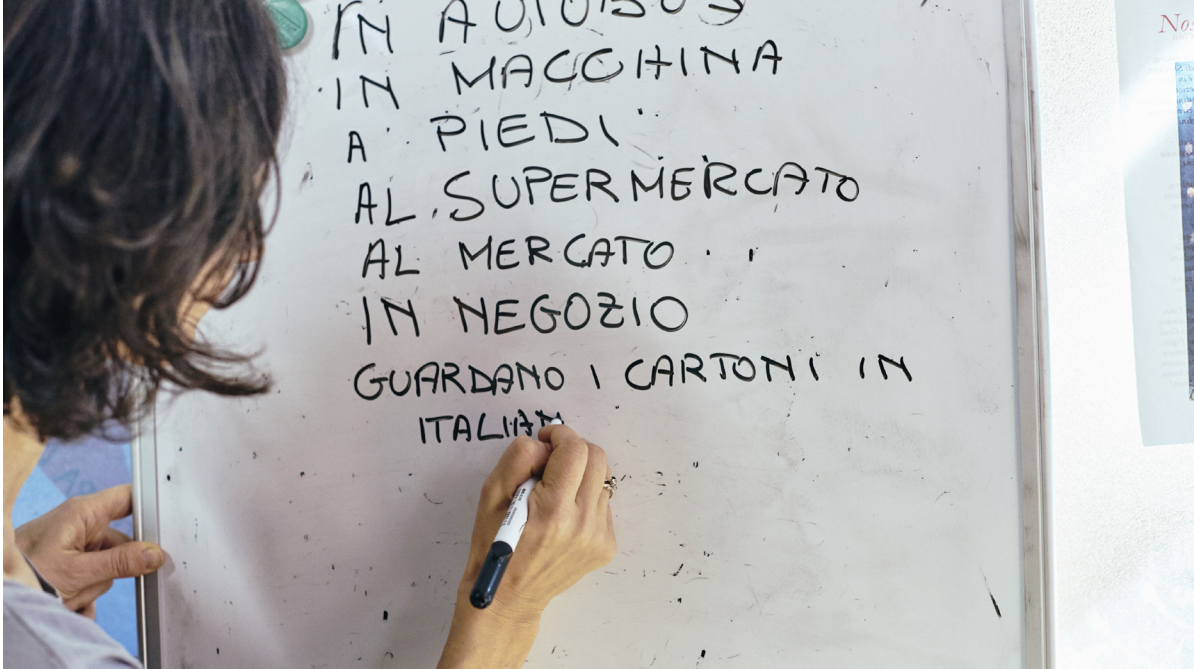 IN AUTOBUS
IN MACCHINA
A PIEDI
AL SUPERMERCATO
AL MERCATO
IN NEGOZIO
GUARDANO I CARTONI IN
ITALIAN